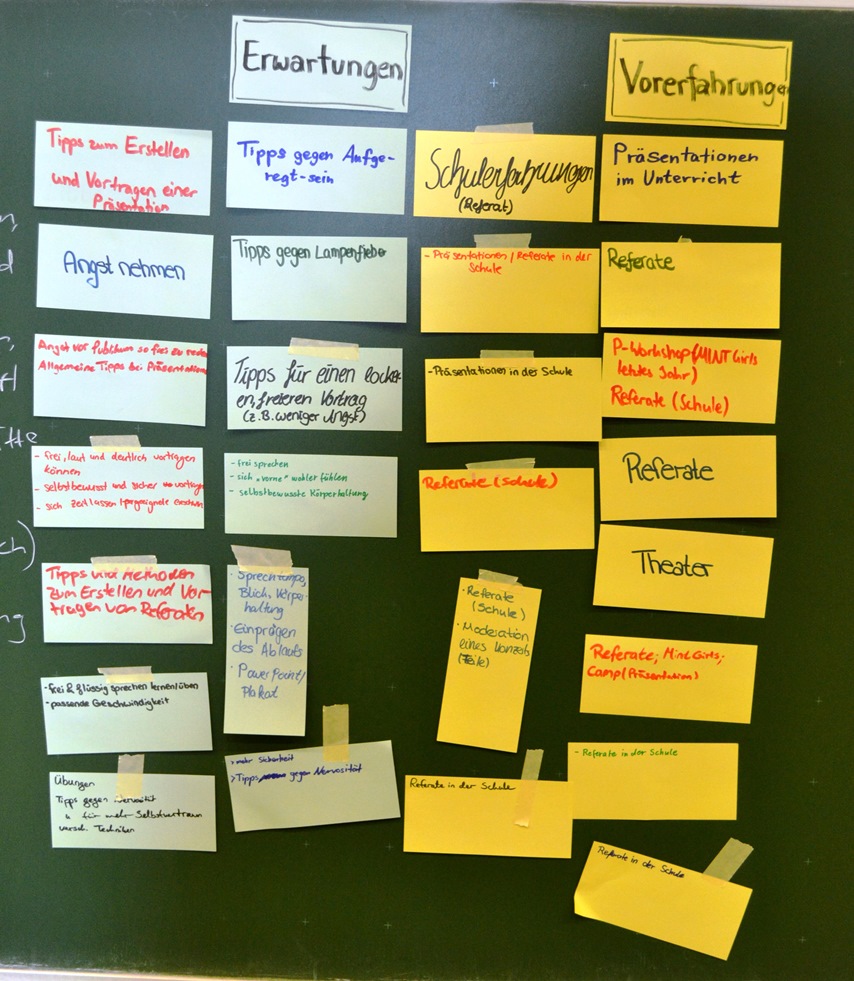 Erwartungen
Tipps zum Erstellen
und Vortragen einer
Präsentation
Angst nehmen
Angst vor Publikum so frei zu reden
Allgemeine Tipps bei Präsentationen
- frei, laut und deutlich vortragen
können
- selbstbewusst und sicher vortragen
- sich Zeit lassen /
Tipps und Methoden
zum Erstellen und Vor-
tragen von Referaten
- frei & flüssig sprechen lernen/üben
- passende Geschwindigkeit
Übungen
Tipps gegen Nervosität
für mehr Selbstvertraun
versch. Techniken
Tipps gegen Aufge-
regt-sein
Tipps gegen Lampenfieber
Tipps für einen locker-
en, freieren Vortrag
(z.B. weniger Angst)
- frei sprechen
- sich „vorne" wohler fühlen
- selbstbewusste Körperhaltung
· Sprechtempo,
Blick, Körper-
haltung
· Einprägen
des Ablaufs
· PowerPoint/
Plakat
> mehr Sicherheit
> Tipps gegen Nervosität
Vorerfahrungen
Schulerfahrungen
(Referat)
- Präsentationen / Referate in der
Schule
- Präsentationen in der Schule
Referate (Schule)
· Referate
(Schule)
· Moderation
eines Konzerts
(Teile)
Referate in der Schule
Präsentationen
im Unterricht
Referate
P-Workshop (MINT Girls
letztes Jahr)
Referate (Schule)
Referate
Theater
Referate; Mint Girls;
Camp (Präsentation)
- Referate in der Schule
Referate in der Schule